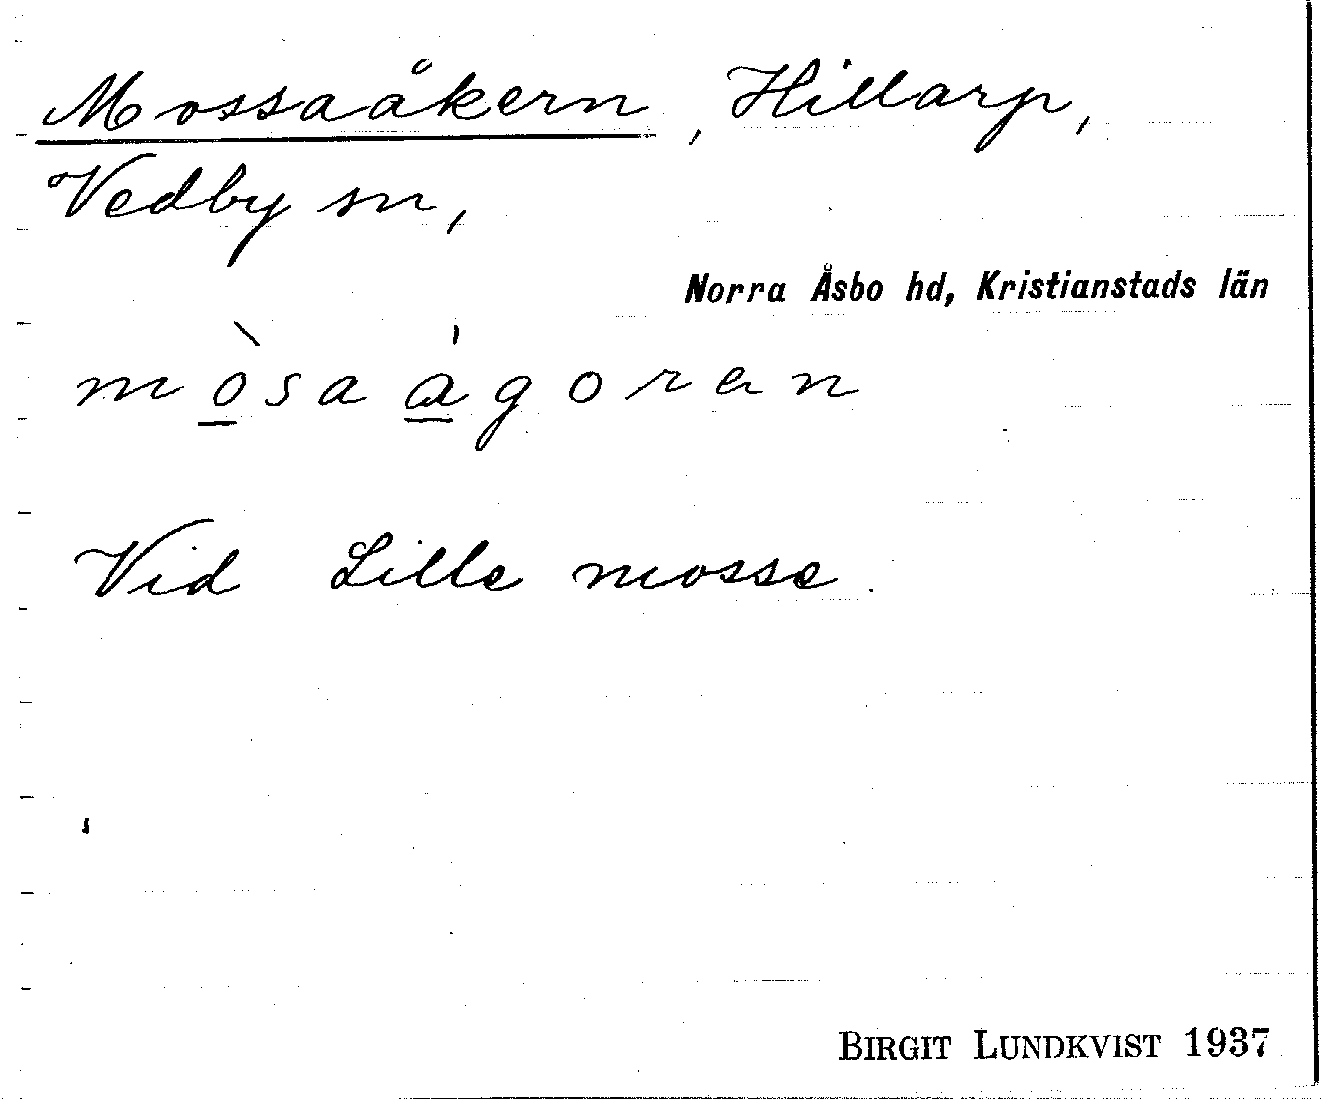 Mossaåkern, Hillarp,
Vedby sn,
Norra Åsbo hd, Kristianstads län
mòsaágoran
Vid Lille mosse.
BIRGIT LUNDKVIST 1937